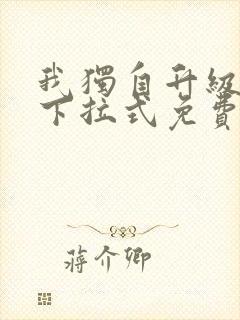 我獨自升級
下拉式免費
蔣介卿